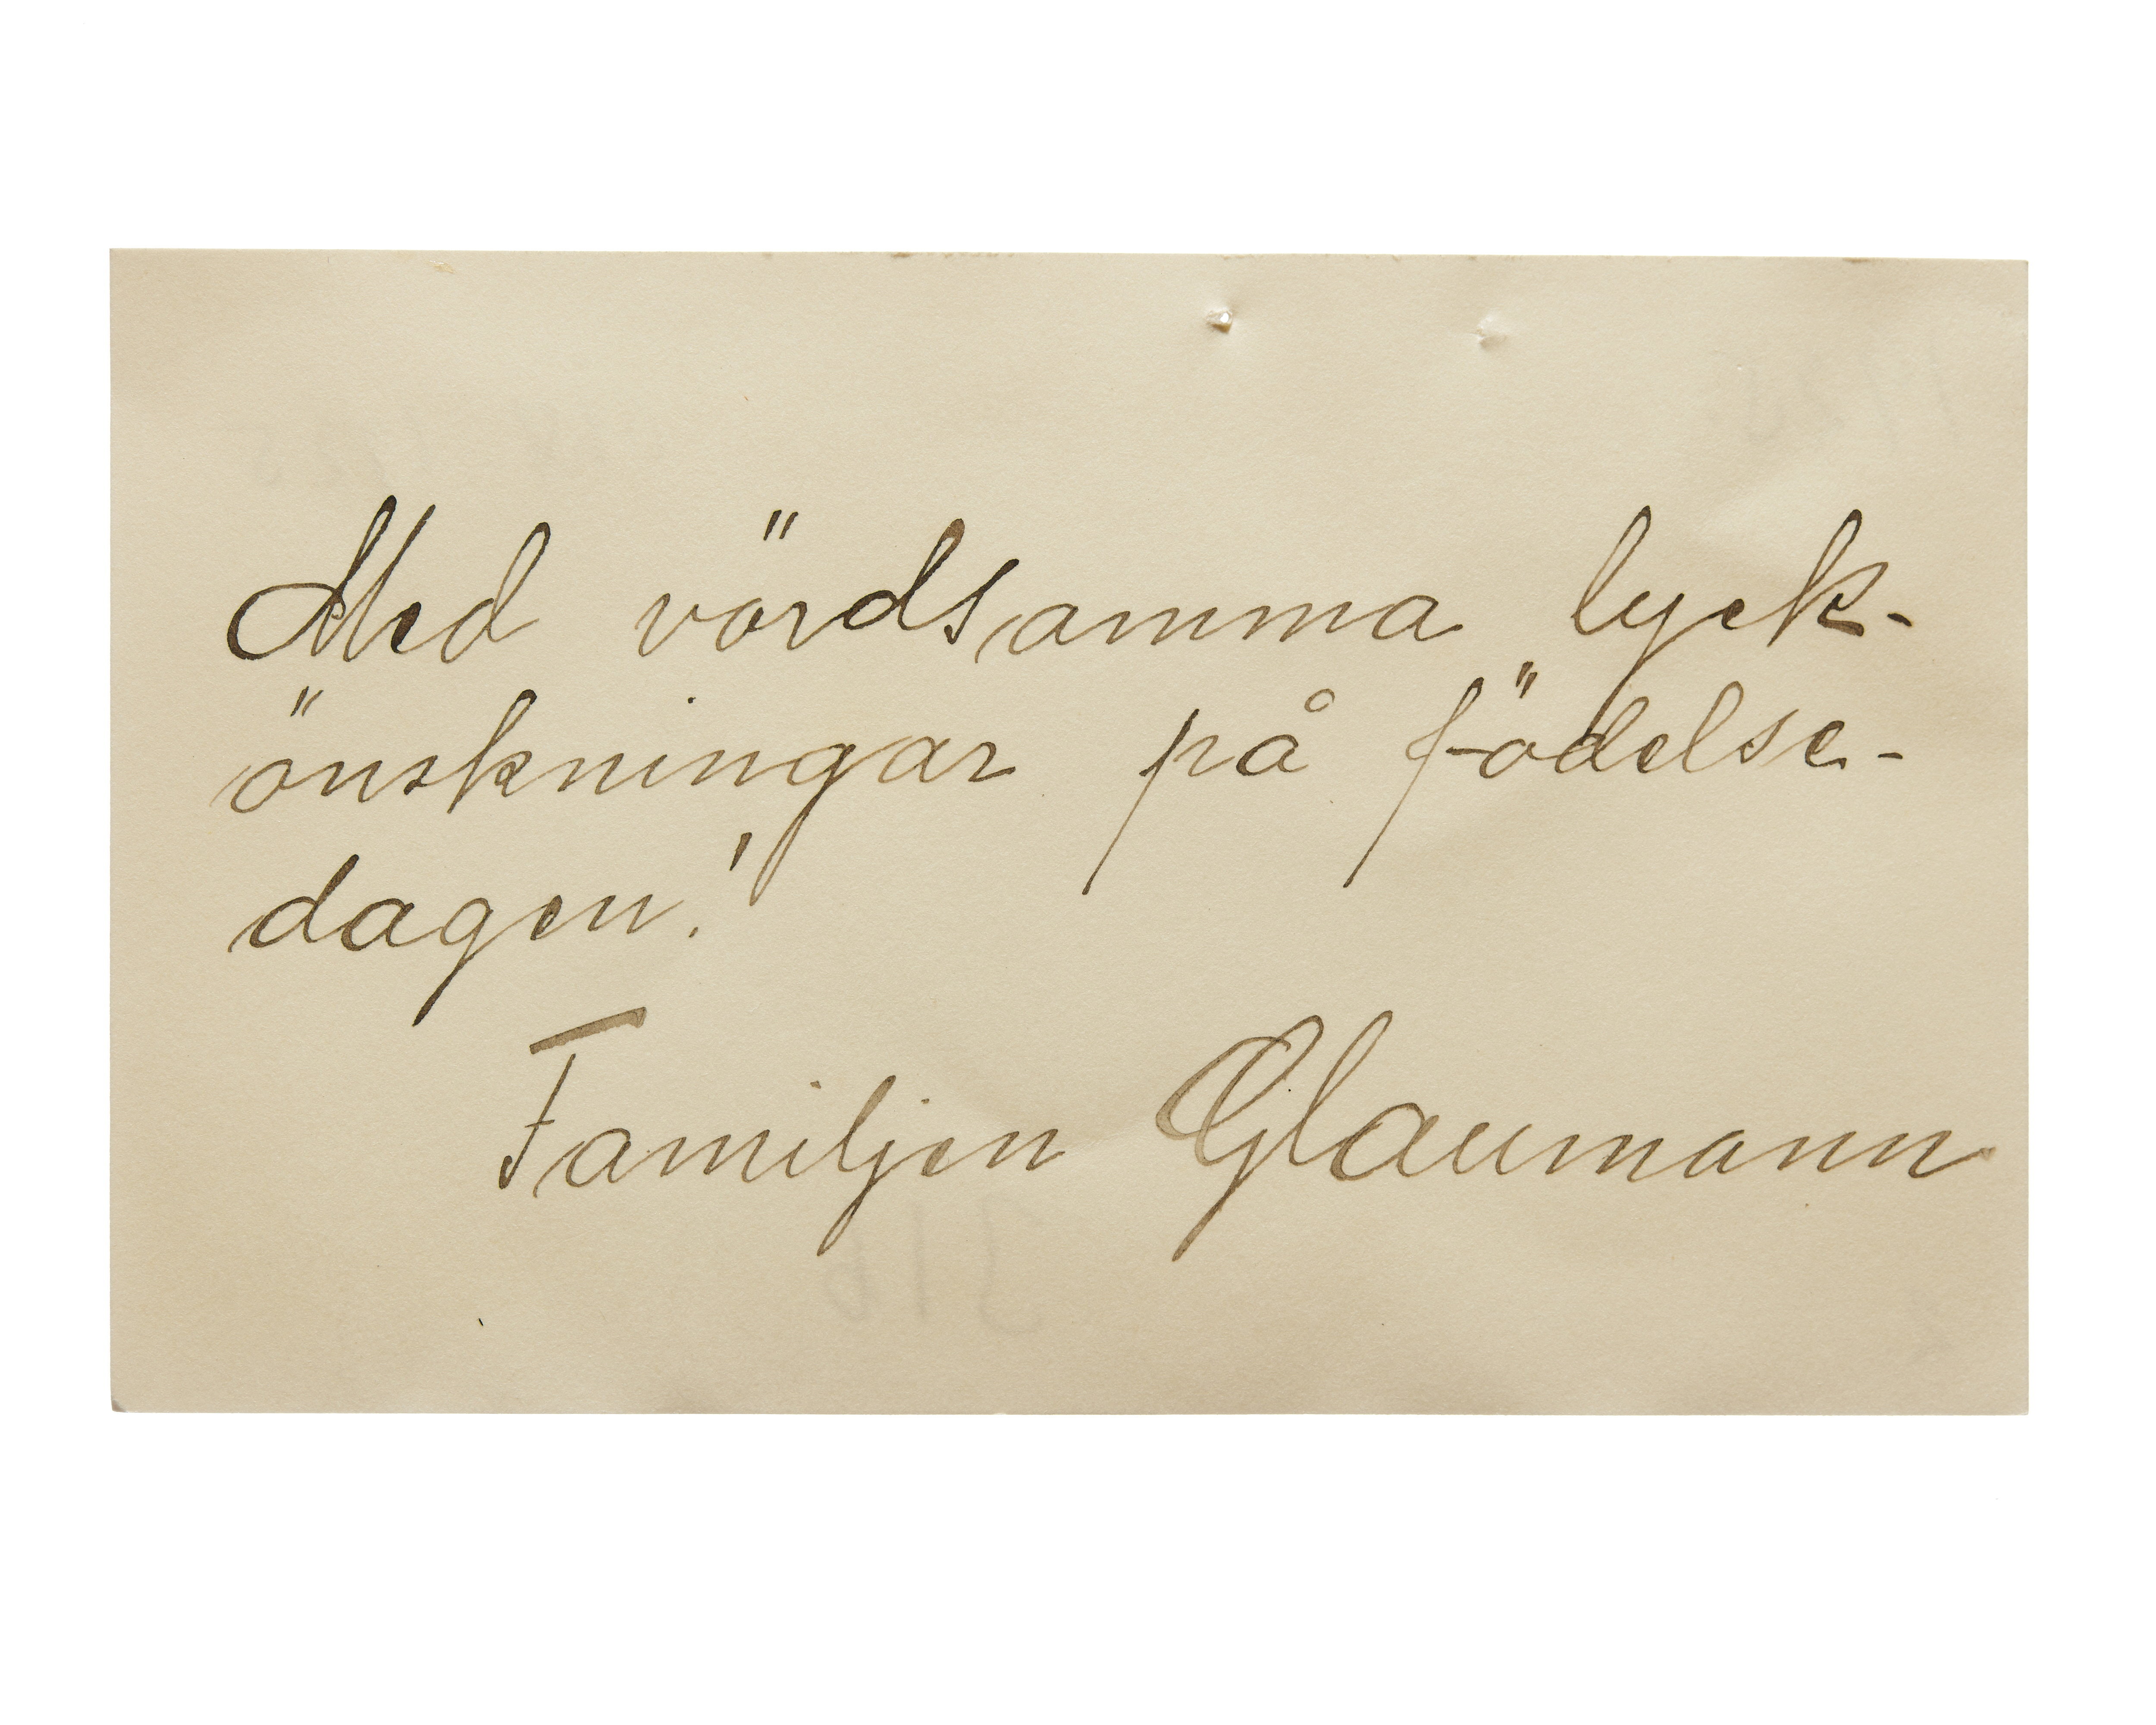 Med vördsamma lyck-
önskningar på födelse-
dagen!
Familjen Glaumann